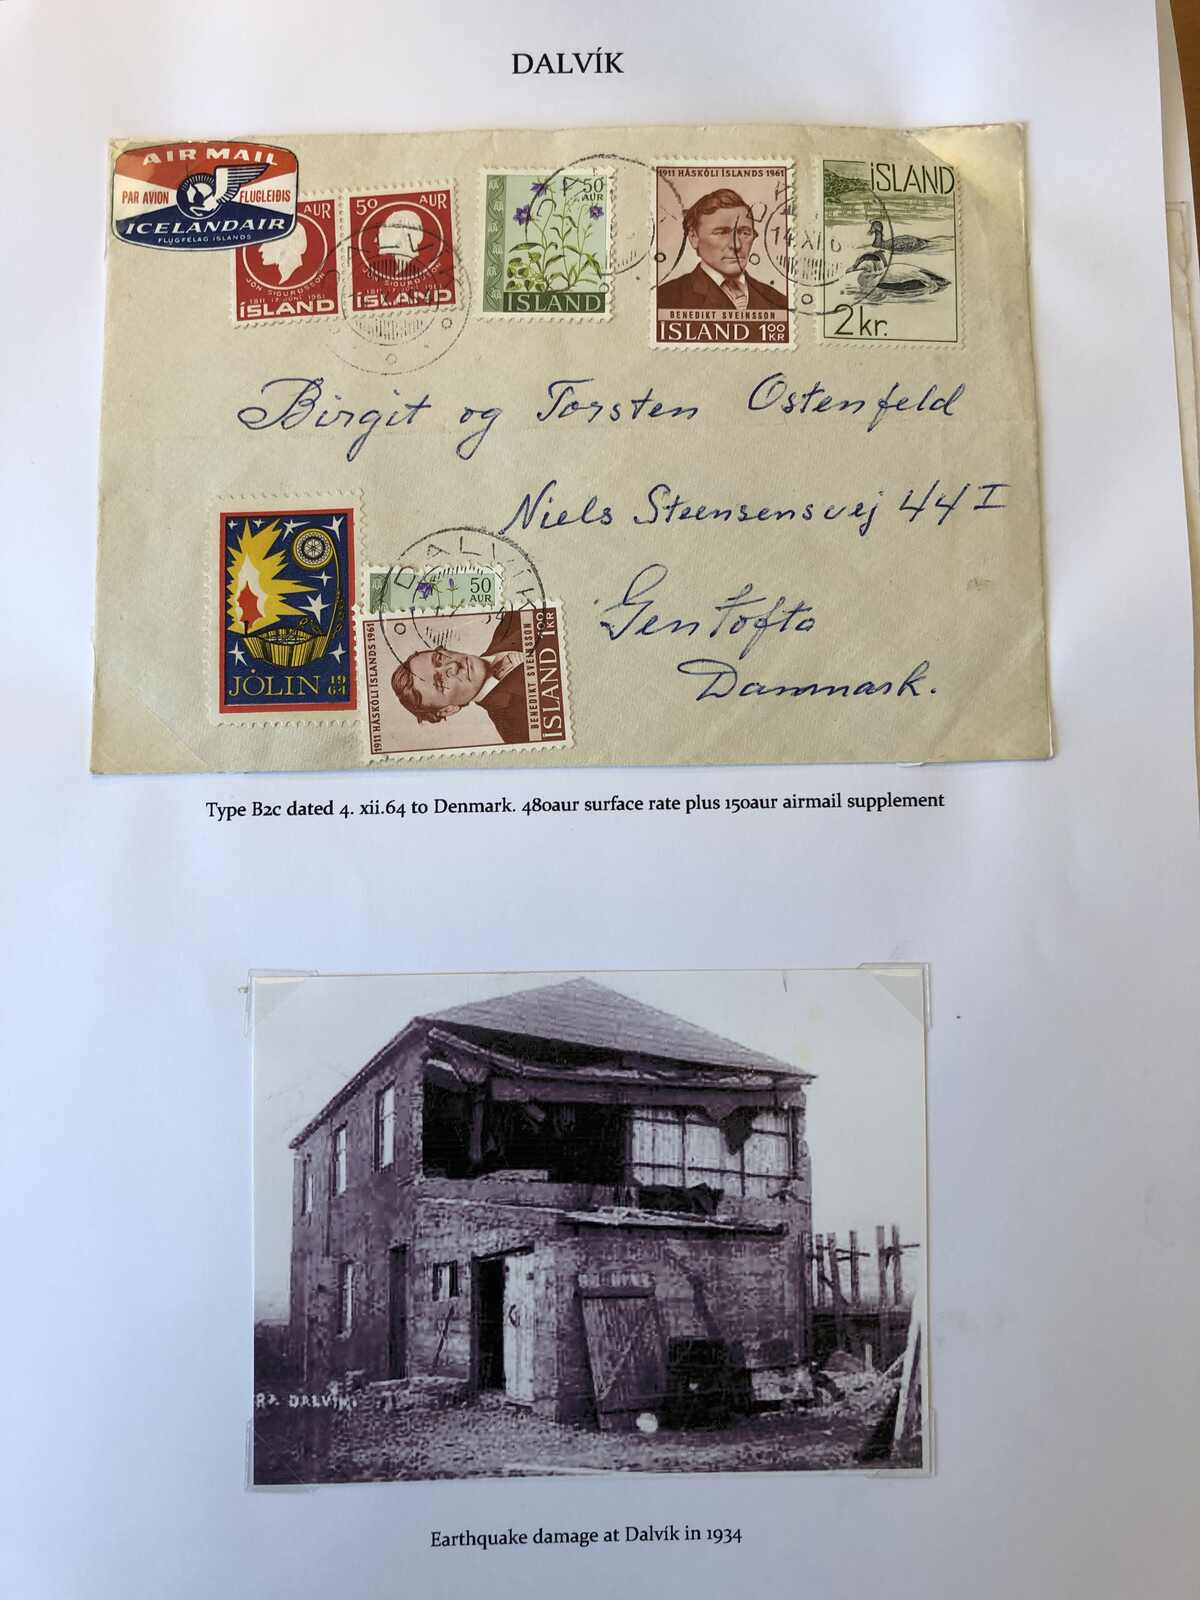 DALVÍK
AIR MAIL
PAR AVION
FLUGLEIÐIS
ICELANDAIR
FLUGFÉLAG ÍSLANDS
AUR
JÓN SIGURÐSSON
1811 17 JÚNÍ 1961
ÍSLAND
50 AUR
JÓN SIGURÐSSON
1811 17 JÚNÍ 1961
ÍSLAND
50
AUR
ÍSLAND
1911 HÁSKÓLI ÍSLANDS 1961
BENEDIKT SVEINSSON
ÍSLAND 1 00 KR
ÍSLAND
2 kr.
DALVÍK
Birgit og Torsten Ostenfeld
Niels Steensensvej 44 I
Gentofta
Danmark.
JÓLIN 1964
50
AUR
DALVÍK
1911 HÁSKÓLI ÍSLANDS 1961
BENEDIKT SVEINSSON
ÍSLAND 1 00 KR
Type B2c dated 4. xii.64 to Denmark. 480aur surface rate plus 150aur airmail supplement
RÁ DALVÍK
Earthquake damage at Dalvík in 1934